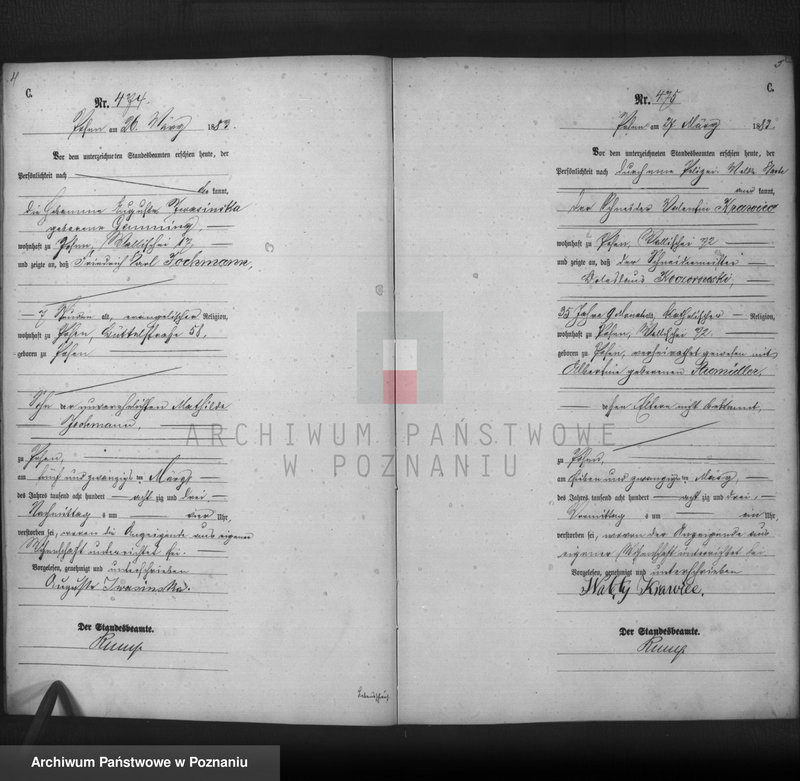 4
C.
Nr. 474.
Posen am 26 März 1883.
Vor dem unterzeichneten Standesbeamten erschien heute, der
Persönlichkeit nach
kannt,
die Hebamme Auguste Iwasinska
geborene
wohnhaft zu Posen, Wallischei 17,
und zeigte an, daß Friedrich Karl Jochmann,
7 Stunden alt, evangelischer Religion,
wohnhaft zu Posen, Büttelstraße 58,
geboren zu Posen
Sohn der unverehelichten Mathilde
Jochmann,
zu Posen,
am fünf und zwanzigsten März
des Jahres tausend acht hundert acht zig und drei
Nachmittag s um vier Uhr,
verstorben sei, wovon die Anzeigende aus eigener
Wissenschaft unterrichtet sei.
Vorgelesen, genehmigt und unterschrieben
Auguste Iwasinska.
Der Standesbeamte.
Rump
5
C.
Nr. 475
Posen am 27 März 1883.
Vor dem unterzeichneten Standesbeamten erschien heute, der
Persönlichkeit nach durch eine Polizei Melde Karte
kannt,
der Schneider Valentin Krawiec
wohnhaft zu Posen, Wallischei 72
und zeigte an, daß der Schneidermeister
Koczorowski,
35 Jahre alt, katholischer Religion,
wohnhaft zu Posen, Wallischei 72.
geboren zu Posen, verheirathet gewesen mit
Albertine geborenen
dessen Eltern nicht bekannt,
zu Posen,
am sieben und zwanzigsten März,
des Jahres tausend acht hundert acht zig und drei,
Vormittag s um ein Uhr,
verstorben sei, wovon der Anzeigende aus
eigener Wissenschaft unterrichtet sei
Vorgelesen, genehmigt und unterschrieben
Krawiec.
Der Standesbeamte.
Rump
ARCHIWUM PAŃSTWOWE
W POZNANIU
Archiwum Państwowe w Poznaniu